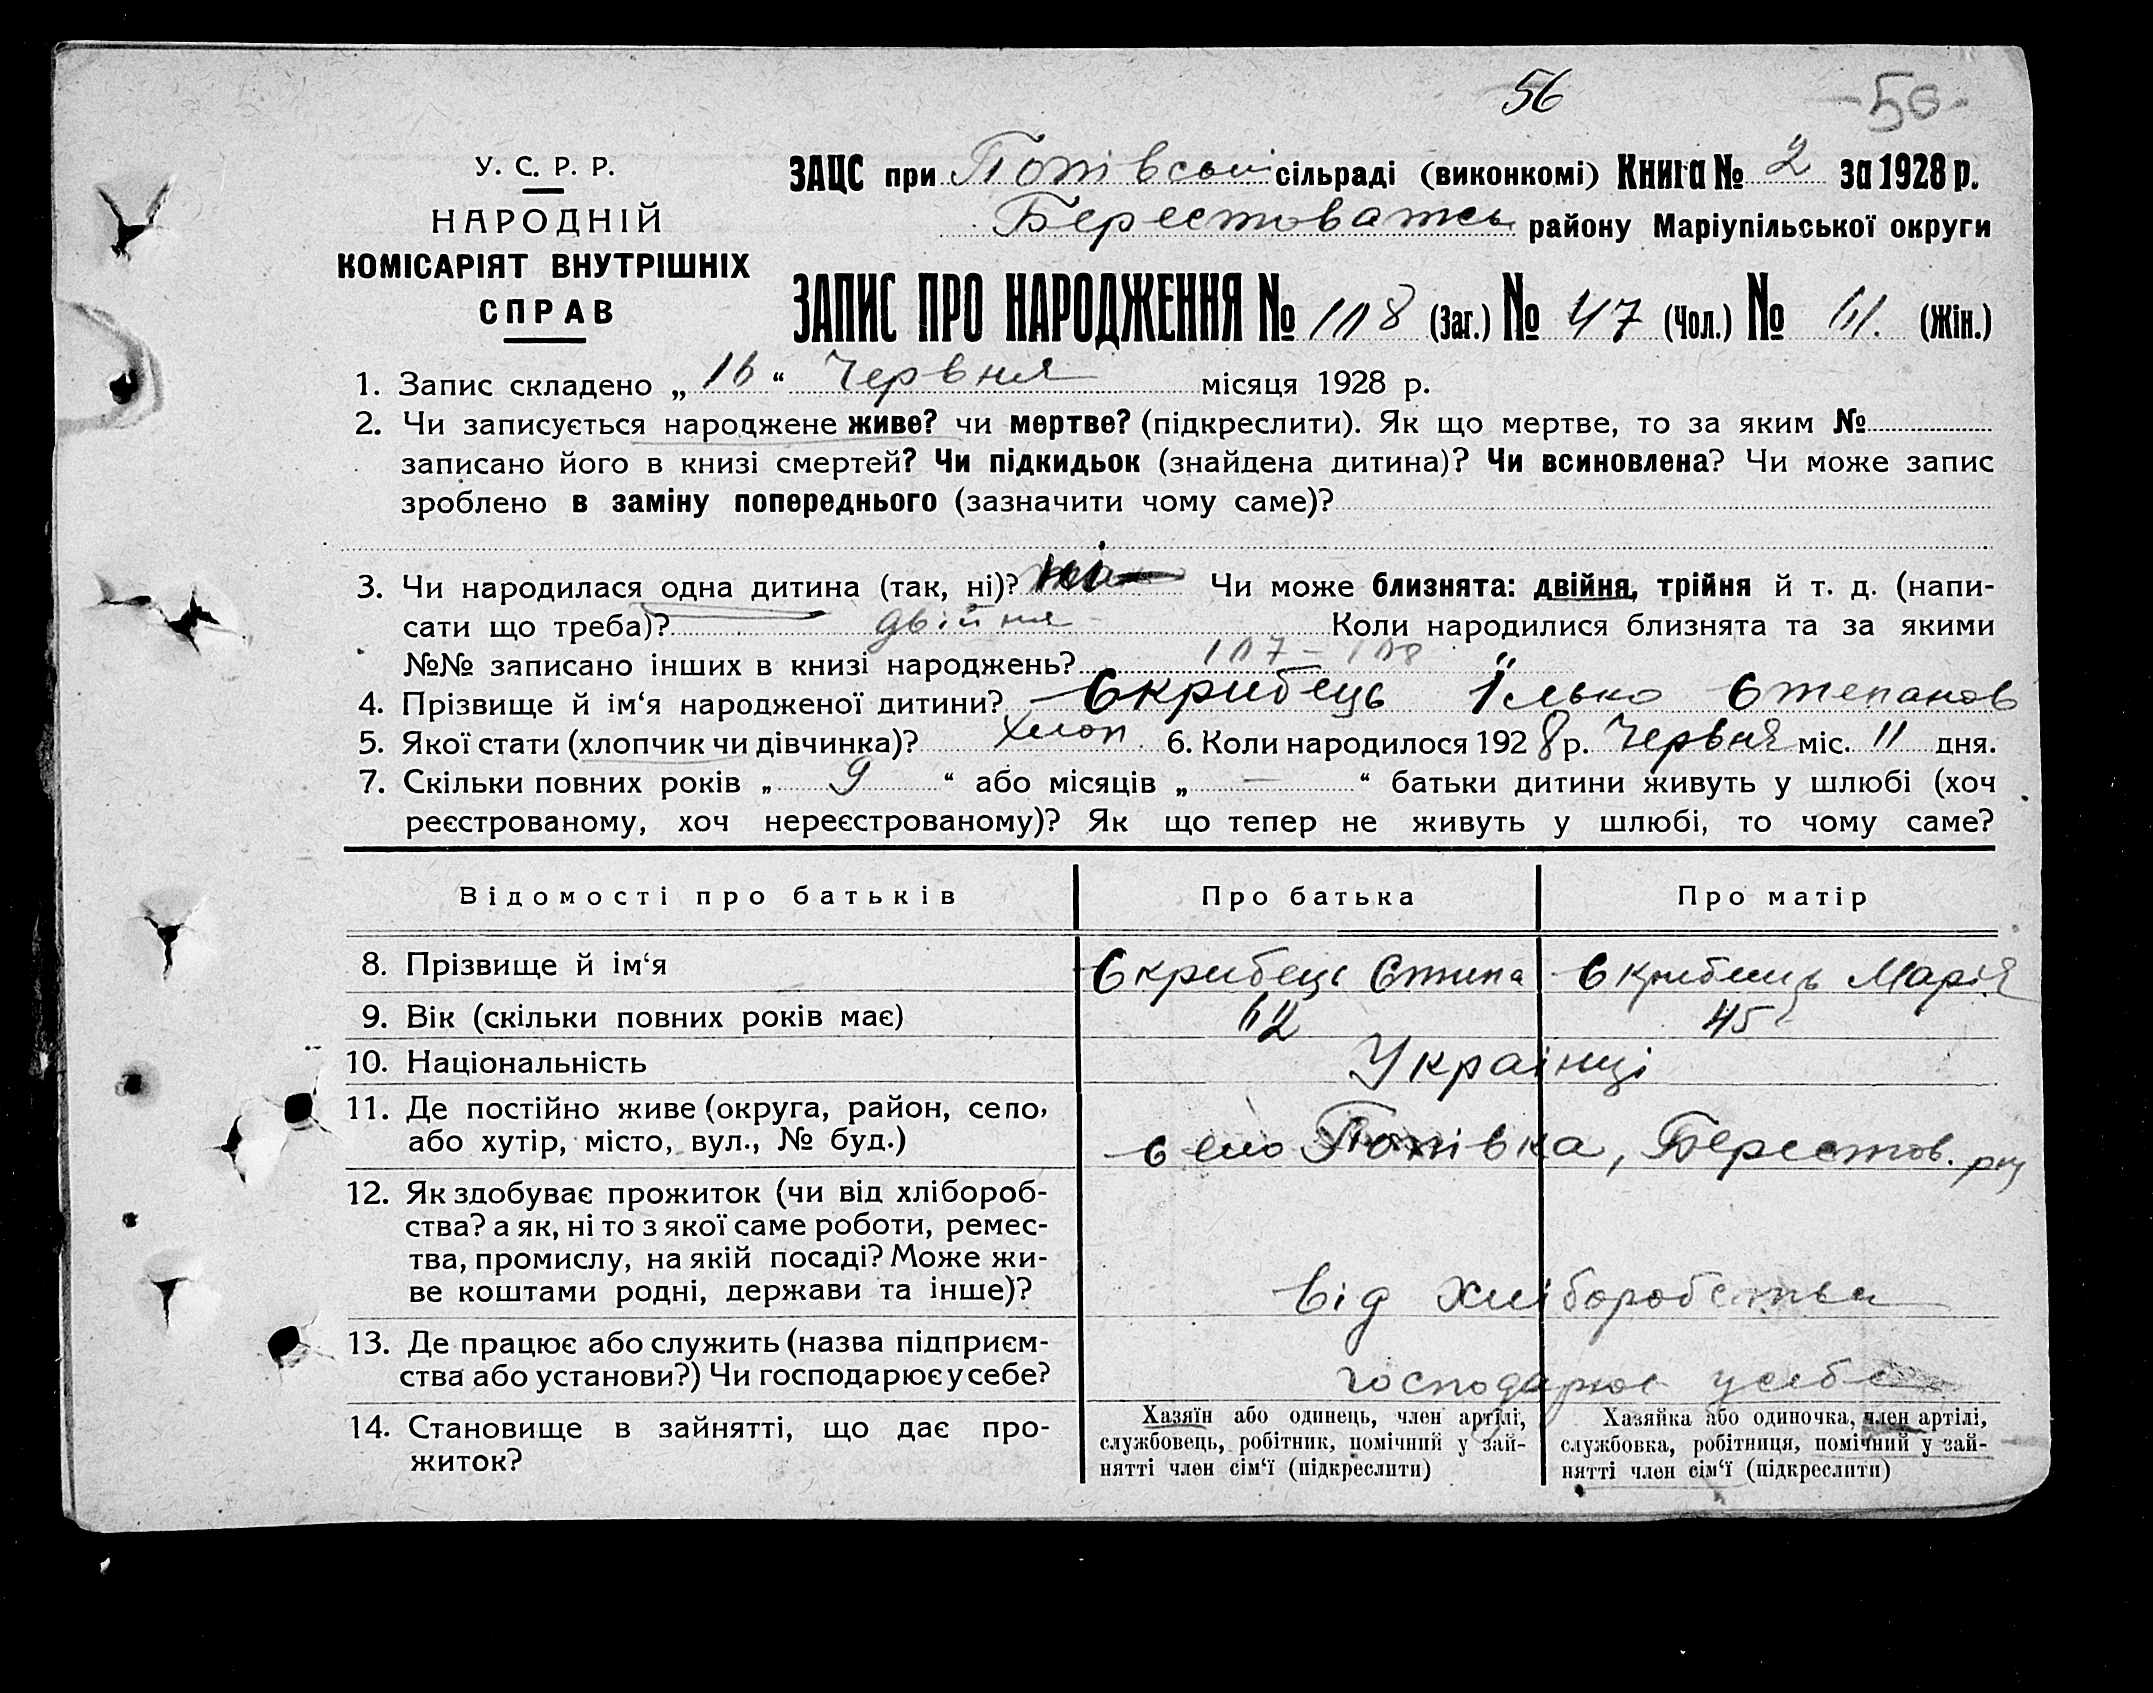 56 -56-
У. С. Р. Р.
НАРОДНІЙ
КОМІСАРІЯТ ВНУТРІШНІХ
СПРАВ
ЗАЦС при Попівській сільраді (виконкомі) Книга № 2 за 1928 р.
Берестоватськ району Маріупільської округи
ЗАПИС ПРО НАРОДЖЕННЯ № 108 (Заг.) № 47 (Чол.) № 61. (Жін.)
1. Запис складено „ 16 “ Червня місяця 1928 р.
2. Чи записується народжене живе? чи мертве? (підкреслити). Як що мертве, то за яким №
записано його в книзі смертей? Чи підкидьок (знайдена дитина)? Чи всиновлена? Чи може запис
зроблено в заміну попереднього (зазначити чому саме)?
3. Чи народилася одна дитина (так, ні)? ні Чи може близнята: двійня, трійня й т. д. (напи-
сати що треба)? двійня Коли народилися близнята та за якими
№№ записано інших в книзі народжень? 107 - 108
4. Прізвище й ім‘я народженої дитини? Скрибець Ілько Степанов
5. Якої стати (хлопчик чи дівчинка)? Хлоп. 6. Коли народилося 1928 р. Червня міс. 11 дня.
7. Скільки повних років „ 9 “ або місяців „ — “ батьки дитини живуть у шлюбі (хоч
реєстрованому, хоч нереєстрованому)? Як що тепер не живуть у шлюбі, то чому саме?
Відомості про батьків Про батька Про матір
8. Прізвище й ім‘я Скрибець Степа Скрибець Марія
9. Вік (скільки повних років має) 62 45
10. Національність Українці
11. Де постійно живе (округа, район, село,
або хутір, місто, вул., № буд.) село Попівка, Берестов. рну
12. Як здобуває прожиток (чи від хлібороб-
ства? а як, ні то з якої саме роботи, ремес-
тва, промислу, на якій посаді? Може жи-
ве коштами родні, держави та інше)? Від хліборобства
13. Де працює або служить (назва підприєм-
ства або установи?) Чи господарює у себе? господарює у себе
14. Становище в зайнятті, що дає про-
житок?
Хазяїн або одинець, член артілі,
службовець, робітник, помічний у зай-
нятті член сім‘ї (підкреслити)
Хазяйка або одиночка, член артілі,
службовка, робітниця, помічний у зай-
нятті член сім‘ї (підкреслити)